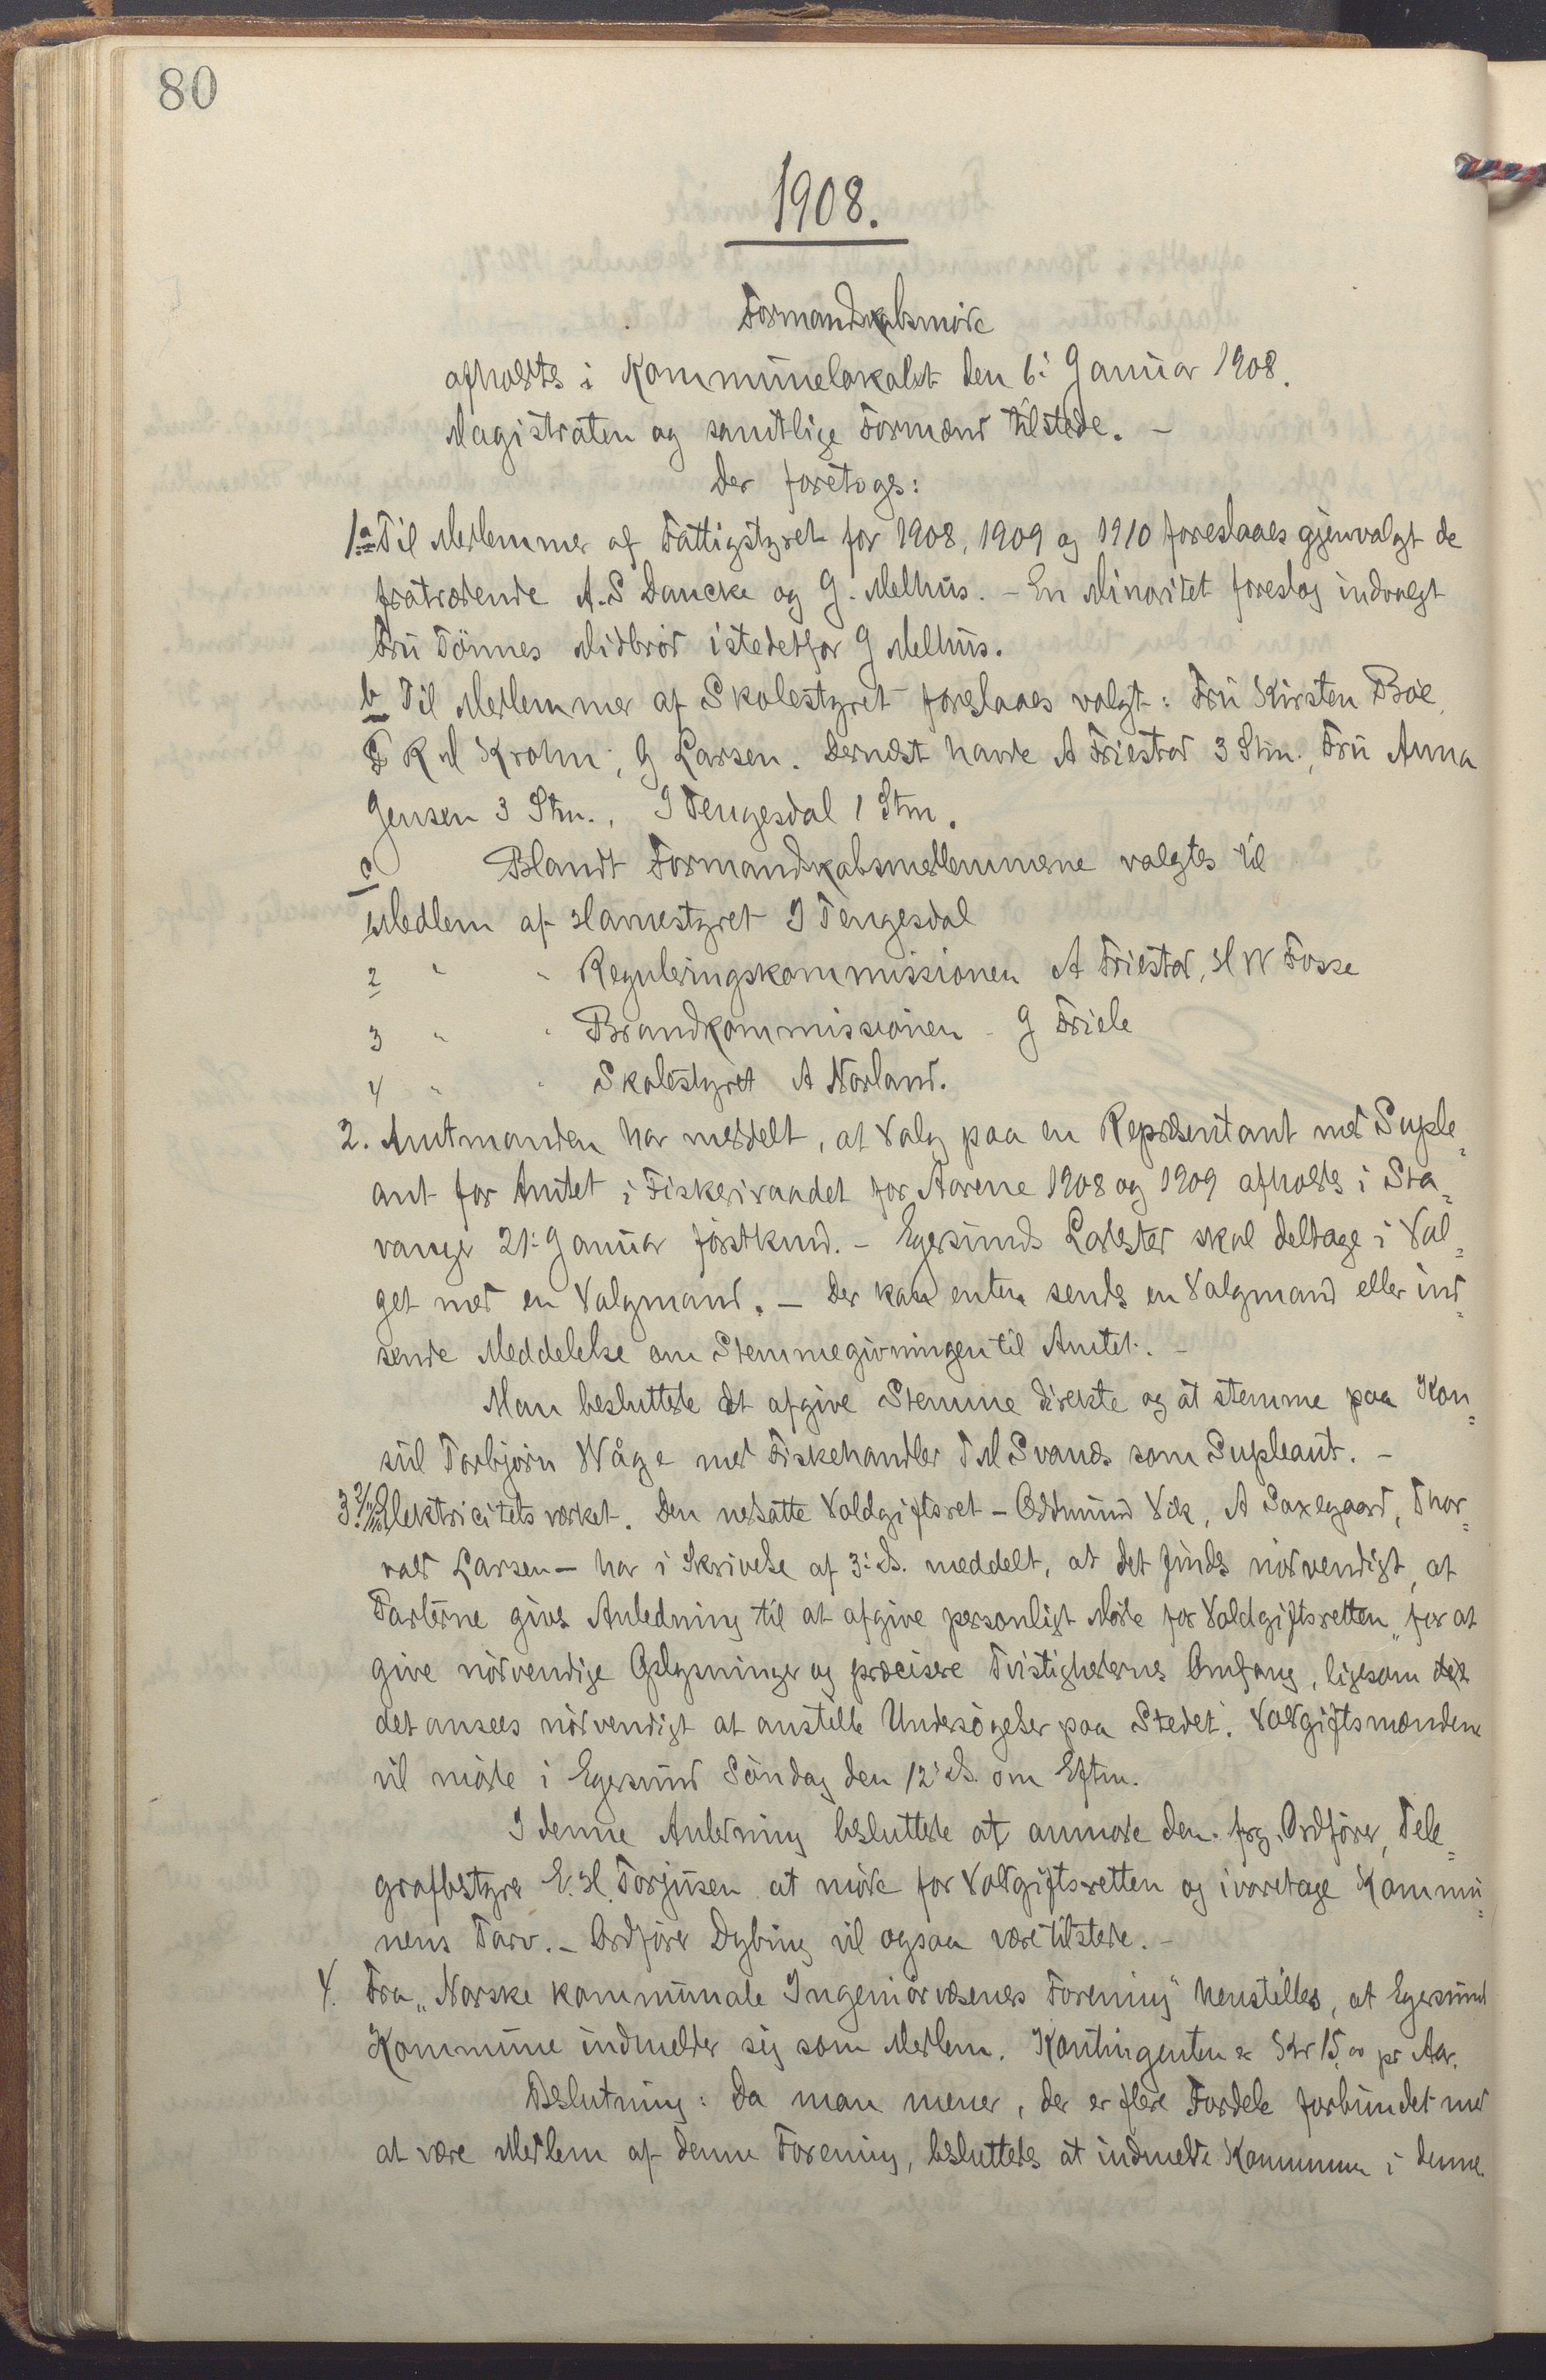 80
1908.
Formandskabsmöde
afholdtes i Kommunelokalet den 6: Januar 1908.
Magistraten og samtlige Formænd tilstede. -
Der foretoges:
1. a Til Medlemmer af Fattigstyret for 1908, 1909 og 1910 foreslaaes gjenvalgt de
fratrædende A. S Dancke og G. Melhus. - En Minoritet foreslog indvalgt
Fru Tönnes Midbröd istedetfor G Melhus.
b Til Medlemmer af Skolestyret foreslaaes valgt: Fru Kirsten Böe,
R M Krohn, G Larsen. Dernæst havde A Friestad 3 Stm., Fru Anna
Jensen 3 Stm., I Tengesdal 1 Stm.
c Blandt Formandskabsmedlemmerne valgtes til
Medlem af Havnestyret I Tengesdal
2 " " Reguleringskommissionen A Friestad, H W Fosse
3 " " Brandkommissionen - G Friele
4 " " Skolestyret A Norland.
2. Amtmanden har meddelt, at Valg paa en Repræsentant med Suple=
ant for Amtet i Fiskeriraadet for Aarene 1908 og 1909 afholdes i Sta=
vanger 21: Januar förstkmd. - Egersunds Ladested skal deltage i Val=
get med en Valgmand. - Der kan enten sendes en Valgmand eller ind=
sende Meddelelse om Stemmegivningen til Amtet. -
Man besluttede at afgive Stemme direkte og at stemme paa Kon=
sul Torbjörn Wåge med Fiskehandler T M Svanes som Supleant. -
3. Elektricitetsværket. Den nedsatte Voldgiftsret - Odmund Vik, A Saxegaard, Thor=
vald Larsen - har i Skrivelse af 3: ds. meddelt, at det findes nödvendigt, at
Parterne gives Anledning til at afgive personligt Möde for Voldgiftsretten "for at
give nödvendige Oplysninger og præcisere Tvistighedernes Omfang, ligesom
det ansees nödvendigt at anstille Undersögelser paa Stedet". Voldgiftsmændene
vil möde i Egersund Söndag den 12: ds. om Eftm.
I denne Anledning besluttede at anmode den frg. Ordförer, Tele=
grafbestyrer E. H. Torjusen at möde for Voldgiftsretten og ivaretage Kommu=
nens Tarv. - Ordförer Dybing vil ogsaa være tilstede. -
4. Fra "Norske kommunale Ingeniörvæseners Forening" henstilles, at Egersund
Kommune indmelder sig som Medlem. Kontingenten er Kr 15,00 pr Aar.
Beslutning: Da man mener, der er flere Fordele forbundet med
at være Medlem af denne Forening, besluttedes at indmelde Kommunen i denne.